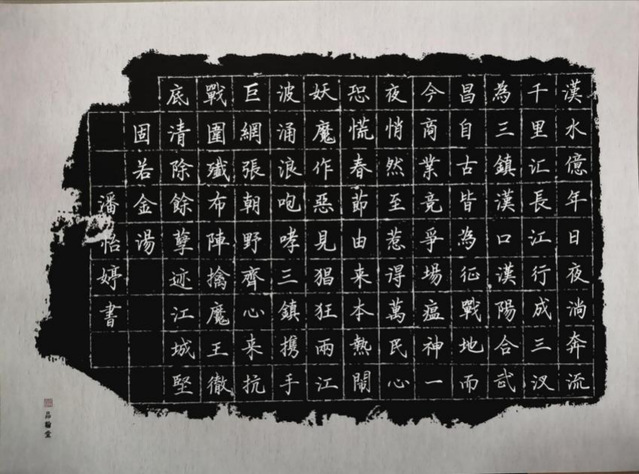 漢水億年日夜淌奔流
千里汇長江行成三汊
為三鎮漢口漢陽合武
昌自古皆為征戰地而
今商業竞爭場瘟神一
夜悄然至惹得萬民心
恐慌春節由来本熱鬧
妖魔作惡見猖狂兩江
波涌浪咆哮三鎮携手
巨網張朝野齊心来抗
戰圍殲布陣擒魔王徹
底清除餘孽迹江城堅
固若金湯
潘怡婷書
品翰堂